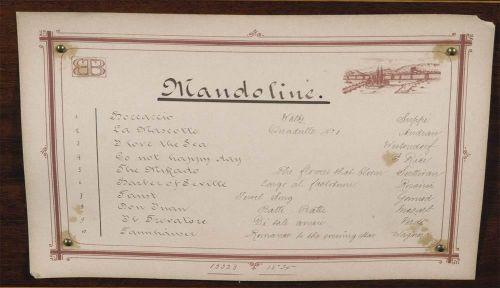 Mandoline.
1 Boccaccio Waltz Suppe
2 La Mascotte Quadrille No 1 Audran
3 I love the Sea Westendorf
4 Go not happy day
5 The Mikado The flowers that bloom Sullivan
6 Barber of Seville Largo al factotum Rossini
7 Faust Jewel Song Gounod
8 Don Juan Batti Batti Mozart
9 Il Trovatore Di tale amor Verdi
10 Tannhäuser Romance to the evening star Wagner
13323